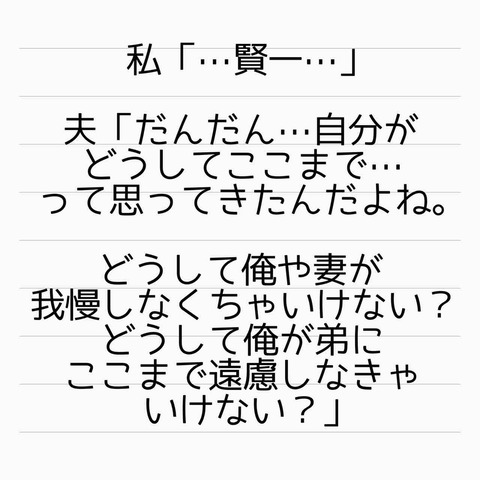 私「…賢一…」
夫「だんだん…自分が
どうしてここまで…
って思ってきたんだよね。
どうして俺や妻が
我慢しなくちゃいけない？
どうして俺が弟に
ここまで遠慮しなきゃ
いけない？」